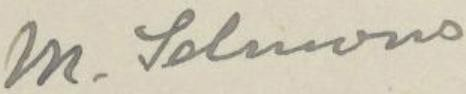 M. Selmons